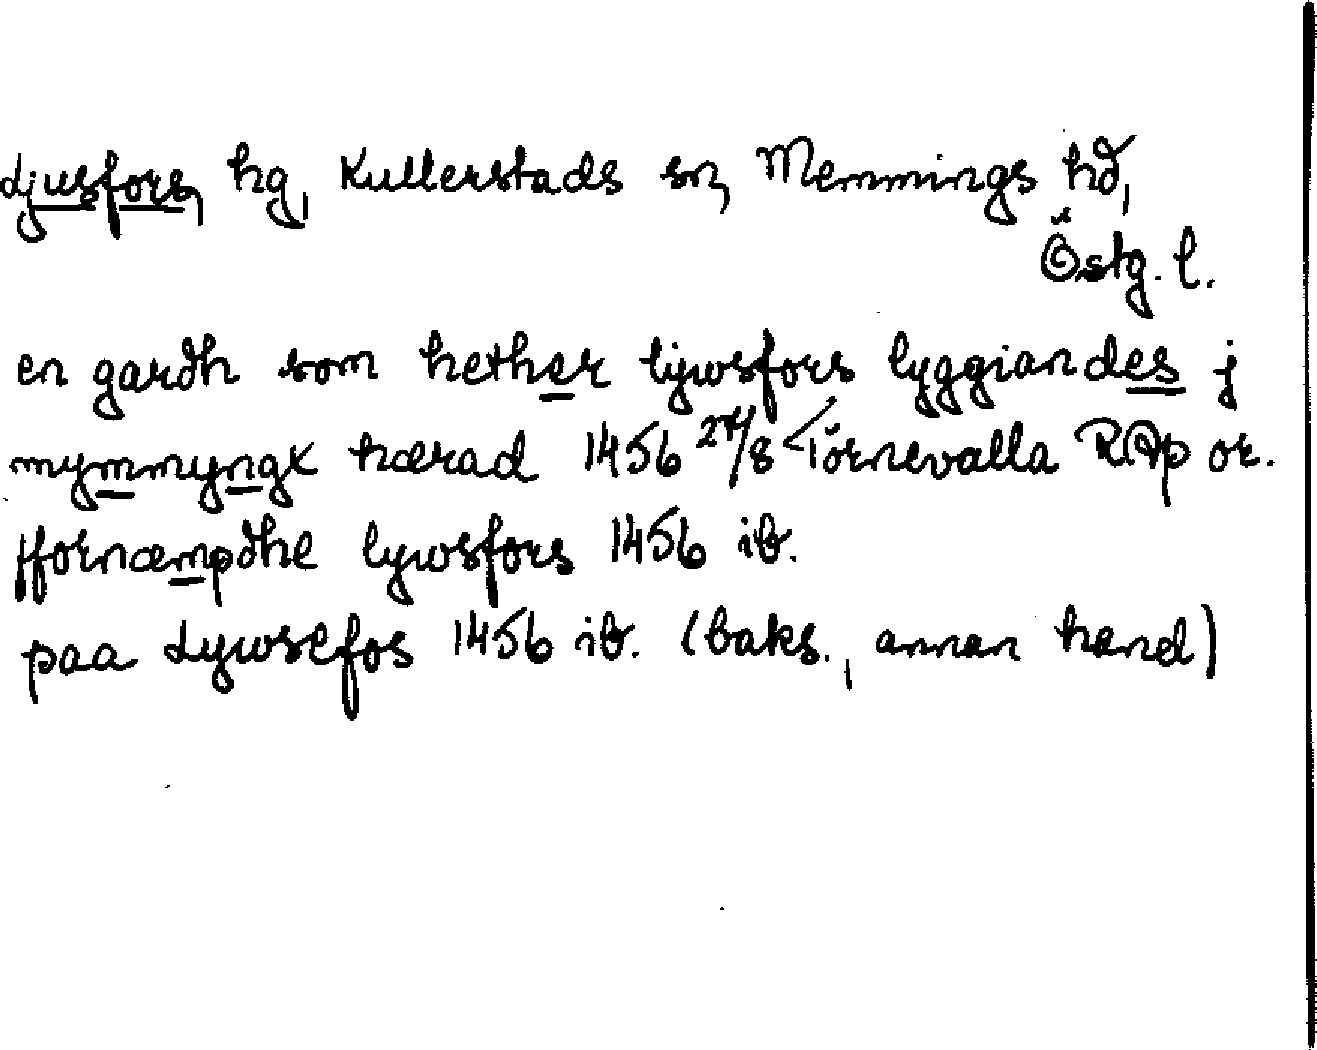 Ljusfors, hg, Kullerstads sn, Memmings hd,
Östg. l.
en gardh som hether ljwsfors lyggiandes j
mymmyngx hærad 1456 27/8 Törnevalla RAp or.
ffornæmpdhe lywsfors 1456 ib.
paa Lywsefos 1456 ib. (baks., annan hand)